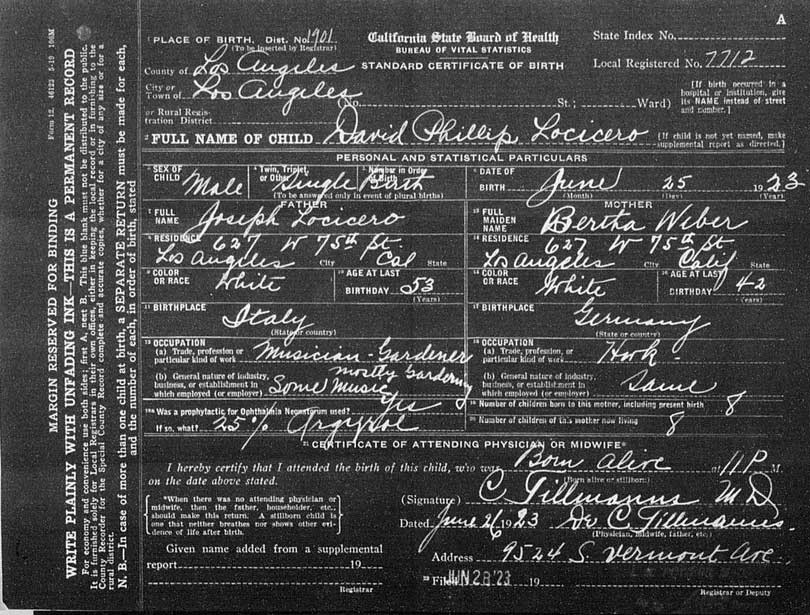 A
PLACE OF BIRTH, Dist. No. 1901
(To be inserted by Registrar)
California State Board of Health
BUREAU OF VITAL STATISTICS
STANDARD CERTIFICATE OF BIRTH
State Index No.
Local Registered No. 7712
County of Los Angeles
City or
Town of Los Angeles
(No. St.; Ward)
[If birth occurred in a
hospital or institution, give
its NAME instead of street
and number.]
or Rural Regis-
tration District
FULL NAME OF CHILD David Phillip Locicero
[If child is not yet named, make
supplemental report as directed.]
PERSONAL AND STATISTICAL PARTICULARS
SEX OF
CHILD Male
Twin, Triplet,
or Other Single Birth
Number in Order
of Birth
(To be answered only in event of plural births)
DATE OF
BIRTH June 25 1923
(Month) (Day) (Year)
FATHER
FULL
NAME Joseph Locicero
RESIDENCE 627 W 75th St.
Los Angeles City Cal State
COLOR
OR RACE White
AGE AT LAST
BIRTHDAY 53
(Years)
BIRTHPLACE Italy
(State or country)
OCCUPATION
(a) Trade, profession, or
particular kind of work Musician - Gardener
mostly Gardening
(b) General nature of industry,
business, or establishment in
which employed (or employer) Some Music
MOTHER
FULL
MAIDEN
NAME Bertha Weber
RESIDENCE 627 W 75th St
Los Angeles City Calif State
COLOR
OR RACE White
AGE AT LAST
BIRTHDAY 42
(Years)
BIRTHPLACE Germany
(State or country)
OCCUPATION
(a) Trade, profession, or
particular kind of work
(b) General nature of industry,
business, or establishment in
which employed (or employer) Same
Was a prophylactic for Ophthalmia Neonatorum used? Yes
If so, what? 25% Argyrol
Number of children born to this mother, including present birth 8
Number of children of this mother now living 8
CERTIFICATE OF ATTENDING PHYSICIAN OR MIDWIFE*
I hereby certify that I attended the birth of this child, who was Born Alive at 11 P M.
(Born alive or stillborn)
on the date above stated.
*When there was no attending physician or
midwife, then the father, householder, etc.,
should make this return. A stillborn child is
one that neither breathes nor shows other evi-
dence of life after birth.
(Signature) C. Tillmanns M D
Dated June 26 1923 Dr C. Tillmanns
(Physician, midwife, father, etc.)
Given name added from a supplemental
report 19
Registrar
Address 9524 S Vermont Ave
Filed JUN 28 '23 19
Registrar or Deputy
Form 12. 46122 5-19 100M
MARGIN RESERVED FOR BINDING
WRITE PLAINLY WITH UNFADING INK—THIS IS A PERMANENT RECORD
For economy and convenience use both sides; first A, next B. This blank must not be distributed to the public.
It is furnished solely for Local Registrars in their own offices, either in keeping the local record or in furnishing to the
County Recorder for the Special County Record complete and accurate copies, whether for a city of any size or for a
rural district.
N. B.—In case of more than one child at birth, a SEPARATE RETURN must be made for each,
and the number of each, in order of birth, stated